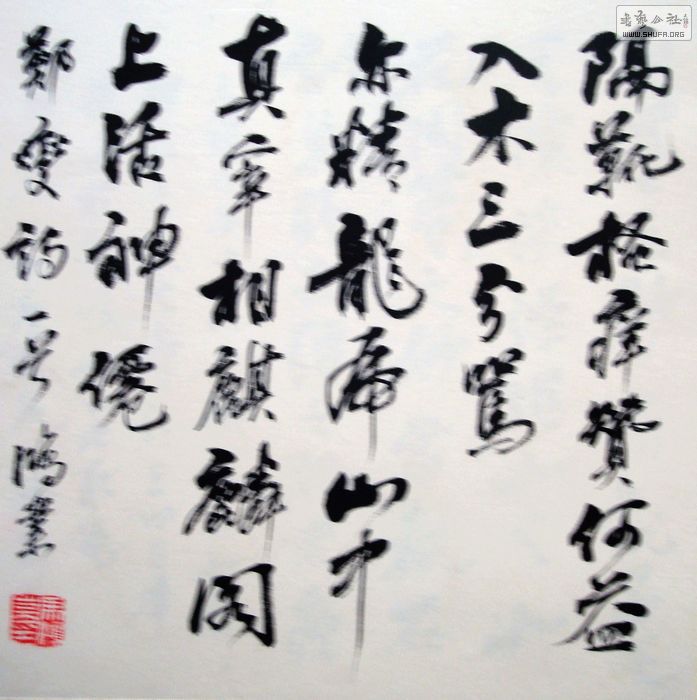 隔靴搔痒贊何益
入木三分罵
亦精龍虎山中
真宰相麒麟閣
上活神僊
鄭燮詩一首 鴻業
書藝公社
WWW.SHUFA.ORG